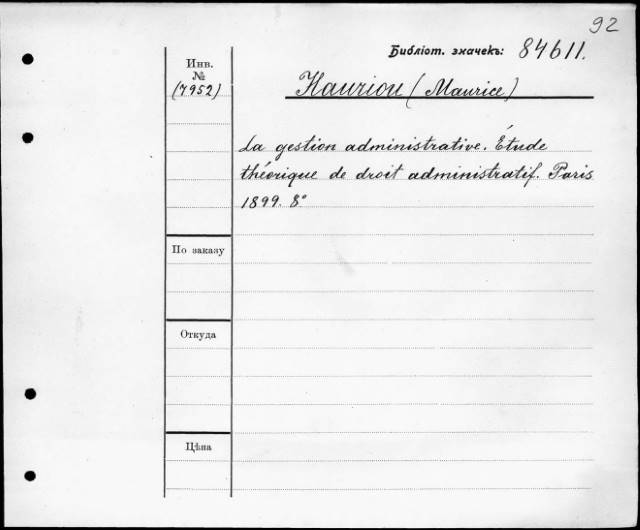 92
Библіот. значекъ: 84611.
Инв.
№
(7952)
Hauriou (Maurice)
La gestion administrative. Étude
théorique de droit administratif. Paris
1899. 8°
По заказу
Откуда
Цѣна